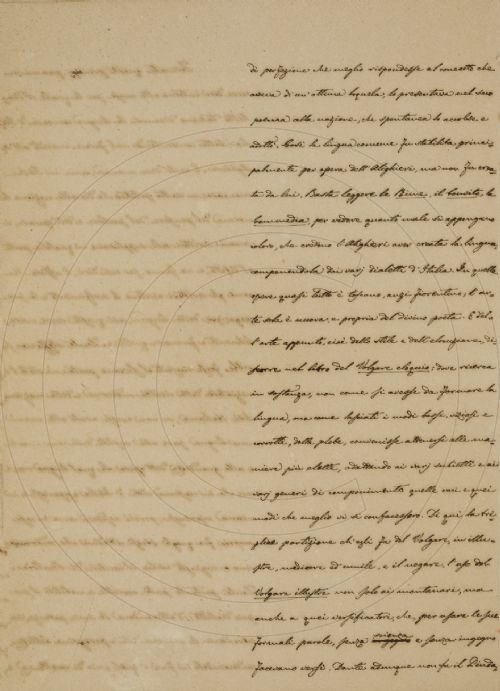 di perfezione che meglio rispondesse al concetto che
aveva di un'ottima loquela, lo presentava nel suo
poema alla nazione, che spontanea lo accolse e
adottò. Così la lingua comune fu stabilita princi-
palmente per opera dell'Alighieri, ma non fu crea-
ta da lui. Basta leggere le Rime, il Convito, la
Commedia, per vedere quanto male si appongano
coloro, che credono l'Alighieri aver creata la lingua,
componendola dei varj dialetti d'Italia. In quelle
opere quasi tutto è toscano, anzi fiorentino; l'ar-
te sola è nuova, e propria del divino poeta. E del-
l'arte appunto, cioè dello stile e dell'elocuzione, di-
scorre nel libro del Volgare eloquio; dove ricerca
in sostanza, non come si avesse da formare la
lingua, ma come lasciati i modi bassi, viziosi e
corrotti, della plebe, convenisse attenersi alle ma-
niere più elette, adattando ai varj subietti e ai
varj generi di componimento quelle voci e quei
modi che meglio vi si confacessero. Di qui la tri-
plice partizione ch'egli fa del Volgare, in illu-
stre, mediocre ed umile, e il negare, l'uso del
Volgare illustre non solo ai montanari, ma
anche a quei versificatori, che, per usare le sue
formali parole, senza scienza e senza ingegno
facevano versi. Dante adunque non fu il